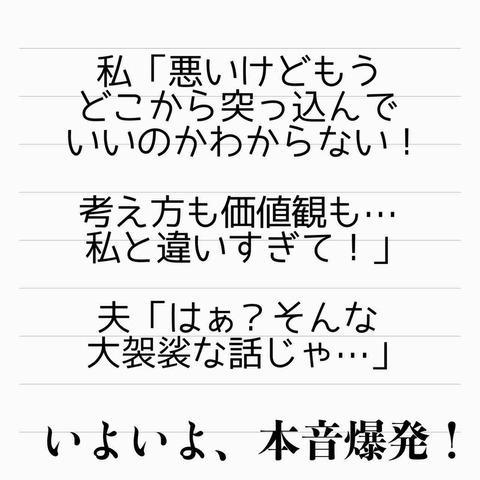 私「悪いけどもう
どこから突っ込んで
いいのかわからない！
考え方も価値観も…
私と違いすぎて！」
夫「はぁ？そんな
大袈裟な話じゃ…」
いよいよ、本音爆発！